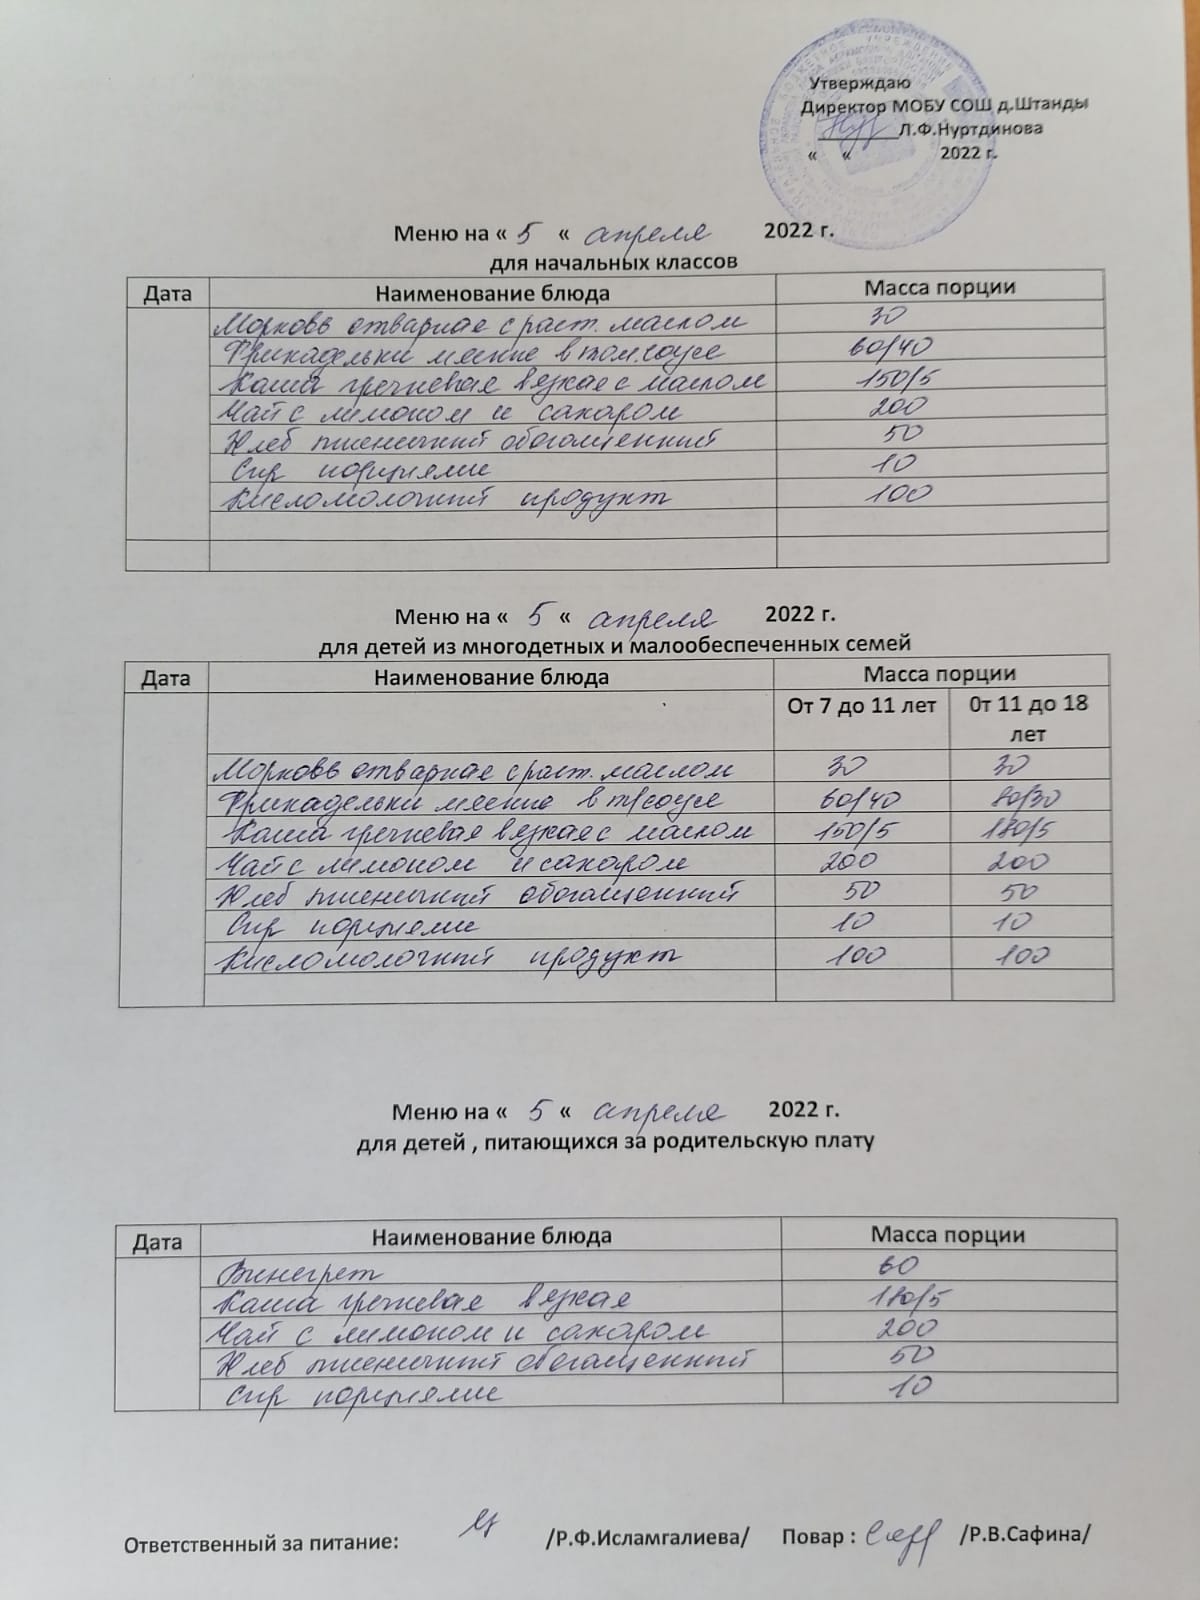 Утверждаю
Директор МОБУ СОШ д.Штанды
Л.Ф.Нуртдинова
« « 2022 г.
Меню на « 5 « апреля 2022 г.
для начальных классов
Дата Наименование блюда Масса порции
Морковь отварная с раст. маслом 30
Фрикадельки мясные в том.соусе 60/40
Каша гречневая вязкая с маслом 150/5
Чай с лимоном и сахаром 200
Хлеб пшеничный обогащенный 50
Сыр порциями 10
Кисломолочный продукт 100
Меню на « 5 « апреля 2022 г.
для детей из многодетных и малообеспеченных семей
Дата Наименование блюда Масса порции
От 7 до 11 лет 0т 11 до 18
лет
Морковь отварная с раст. маслом 30 30
Фрикадельки мясные в т/соусе 60/40 80/30
Каша гречневая вязкая с маслом 150/5 180/5
Чай с лимоном и сахаром 200 200
Хлеб пшеничный обогащенный 50 50
Сыр порциями 10 10
Кисломолочный продукт 100 100
Меню на « 5 « апреля 2022 г.
для детей , питающихся за родительскую плату
Дата Наименование блюда Масса порции
Винегрет 60
Каша гречневая вязкая 180/5
Чай с лимоном и сахаром 200
Хлеб пшеничный обогащенный 50
Сыр порциями 10
Ответственный за питание: /Р.Ф.Исламгалиева/ Повар : /Р.В.Сафина/